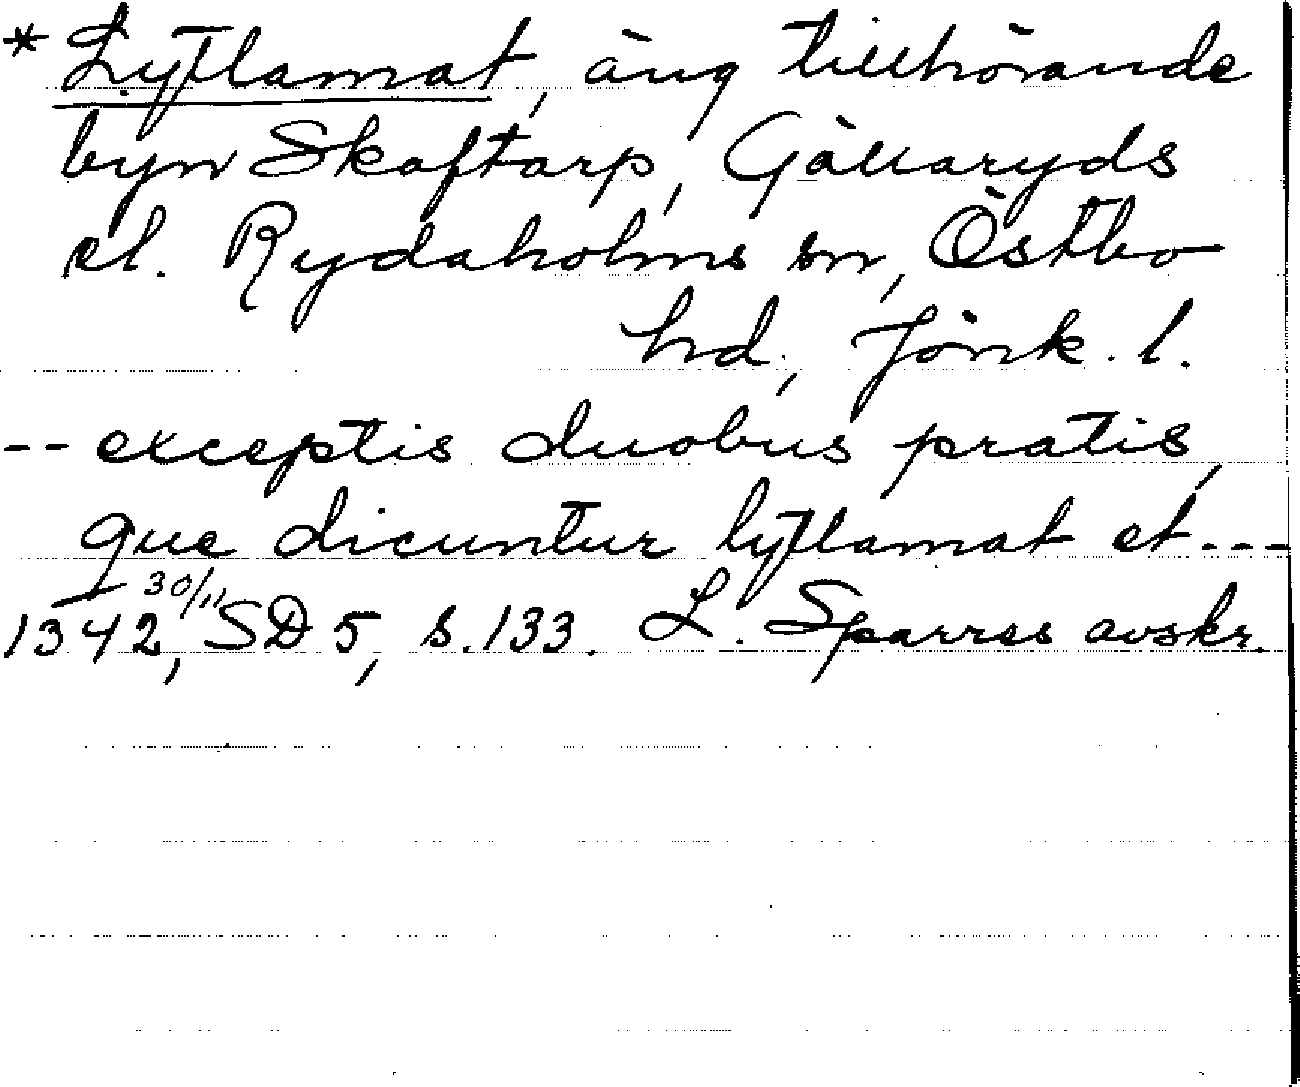 * Lytlamat, äng tillhörande
byn Skaftarp, Gällaryds
el. Rydaholms sn, Östbo
hd, Jönk. l.
-- exceptis duobus pratis,
que dicuntur lytlamat et ---
1342 30/11, SD 5, s. 133. L. Sparres avskr.